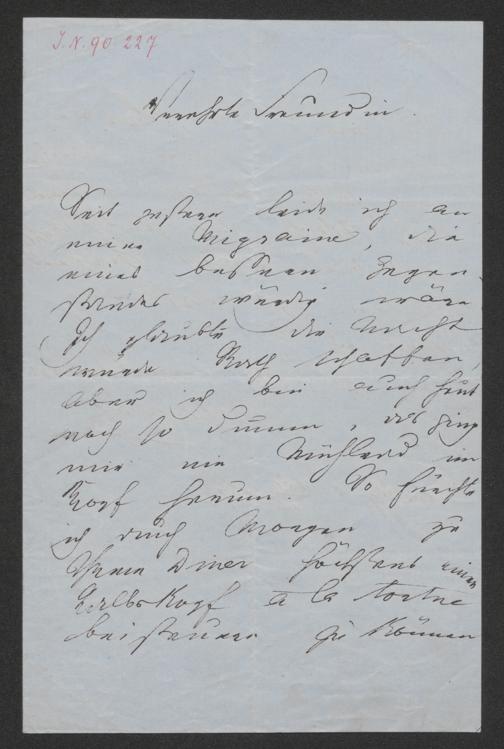 I.N. 90 227
Verehrte Freundin.
Seit gestern leide ich an
einer Migraine, die
eines bessern Gegen-
standes würdig wäre
Ich glaubte die Nacht
würde Rath schaffen,
aber ich bin auch heut
noch so dumm, als ging
mir ein Mühlrad im
Kopf herum. So fürchte
ich auch Morgen zu
Ihrem Diner höchstens einen
Kalbskopf à la tortue
beisteuern zu können